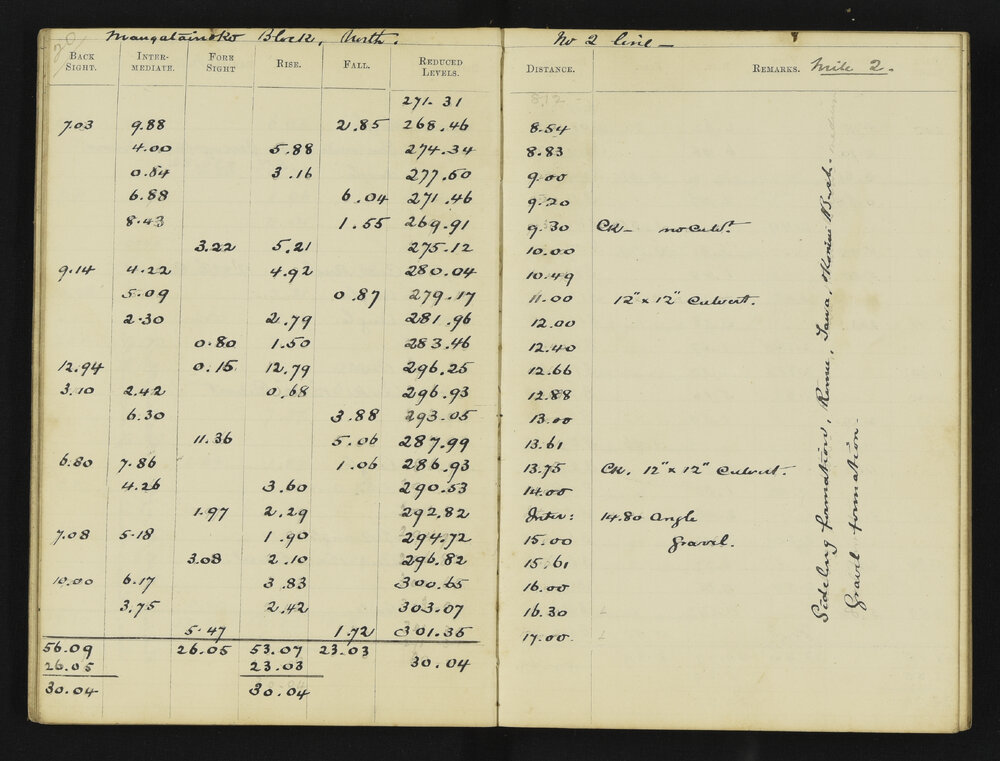 20
Mangatainoko Block, North.
BACK SIGHT. INTER-MEDIATE. FORE SIGHT RISE. FALL. REDUCED LEVELS.
271.31
7.03 9.88 2.85 268.46
4.00 5.88 274.34
0.84 3.16 277.50
6.88 6.04 271.46
8.43 1.55 269.91
3.22 5.21 275.12
9.14 4.22 4.92 280.04
5.09 0.87 279.17
2.30 2.79 281.96
0.80 1.50 283.46
12.94 0.15 12.79 296.25
3.10 2.42 0.68 296.93
6.30 3.88 293.05
11.36 5.06 287.99
6.80 7.86 1.06 286.93
4.26 3.60 290.53
1.97 2.29 292.82
7.08 5.18 1.90 294.72
3.08 2.10 296.82
10.00 6.17 3.83 300.65
3.75 2.42 303.07
5.47 1.72 301.35
56.09 26.05 53.07 23.03
26.05 23.03 30.04
30.04 30.04
No 2 line —
DISTANCE. REMARKS. Mile 2.
8.12
8.54
8.83
9.00
9.20
9.30 CK— no Culvt.
10.00
10.49
11.00 12" x 12" Culvert.
12.00
12.40
12.66
12.88
13.00
13.61
13.75 CK. 12" x 12" Culvert.
14.00
Inter: 14.80 Angle
15.00 Gravel.
15.61
16.00
16.30
17.00
Sideling formation, Rimu, Tawa, Bush.
Gravel formation.